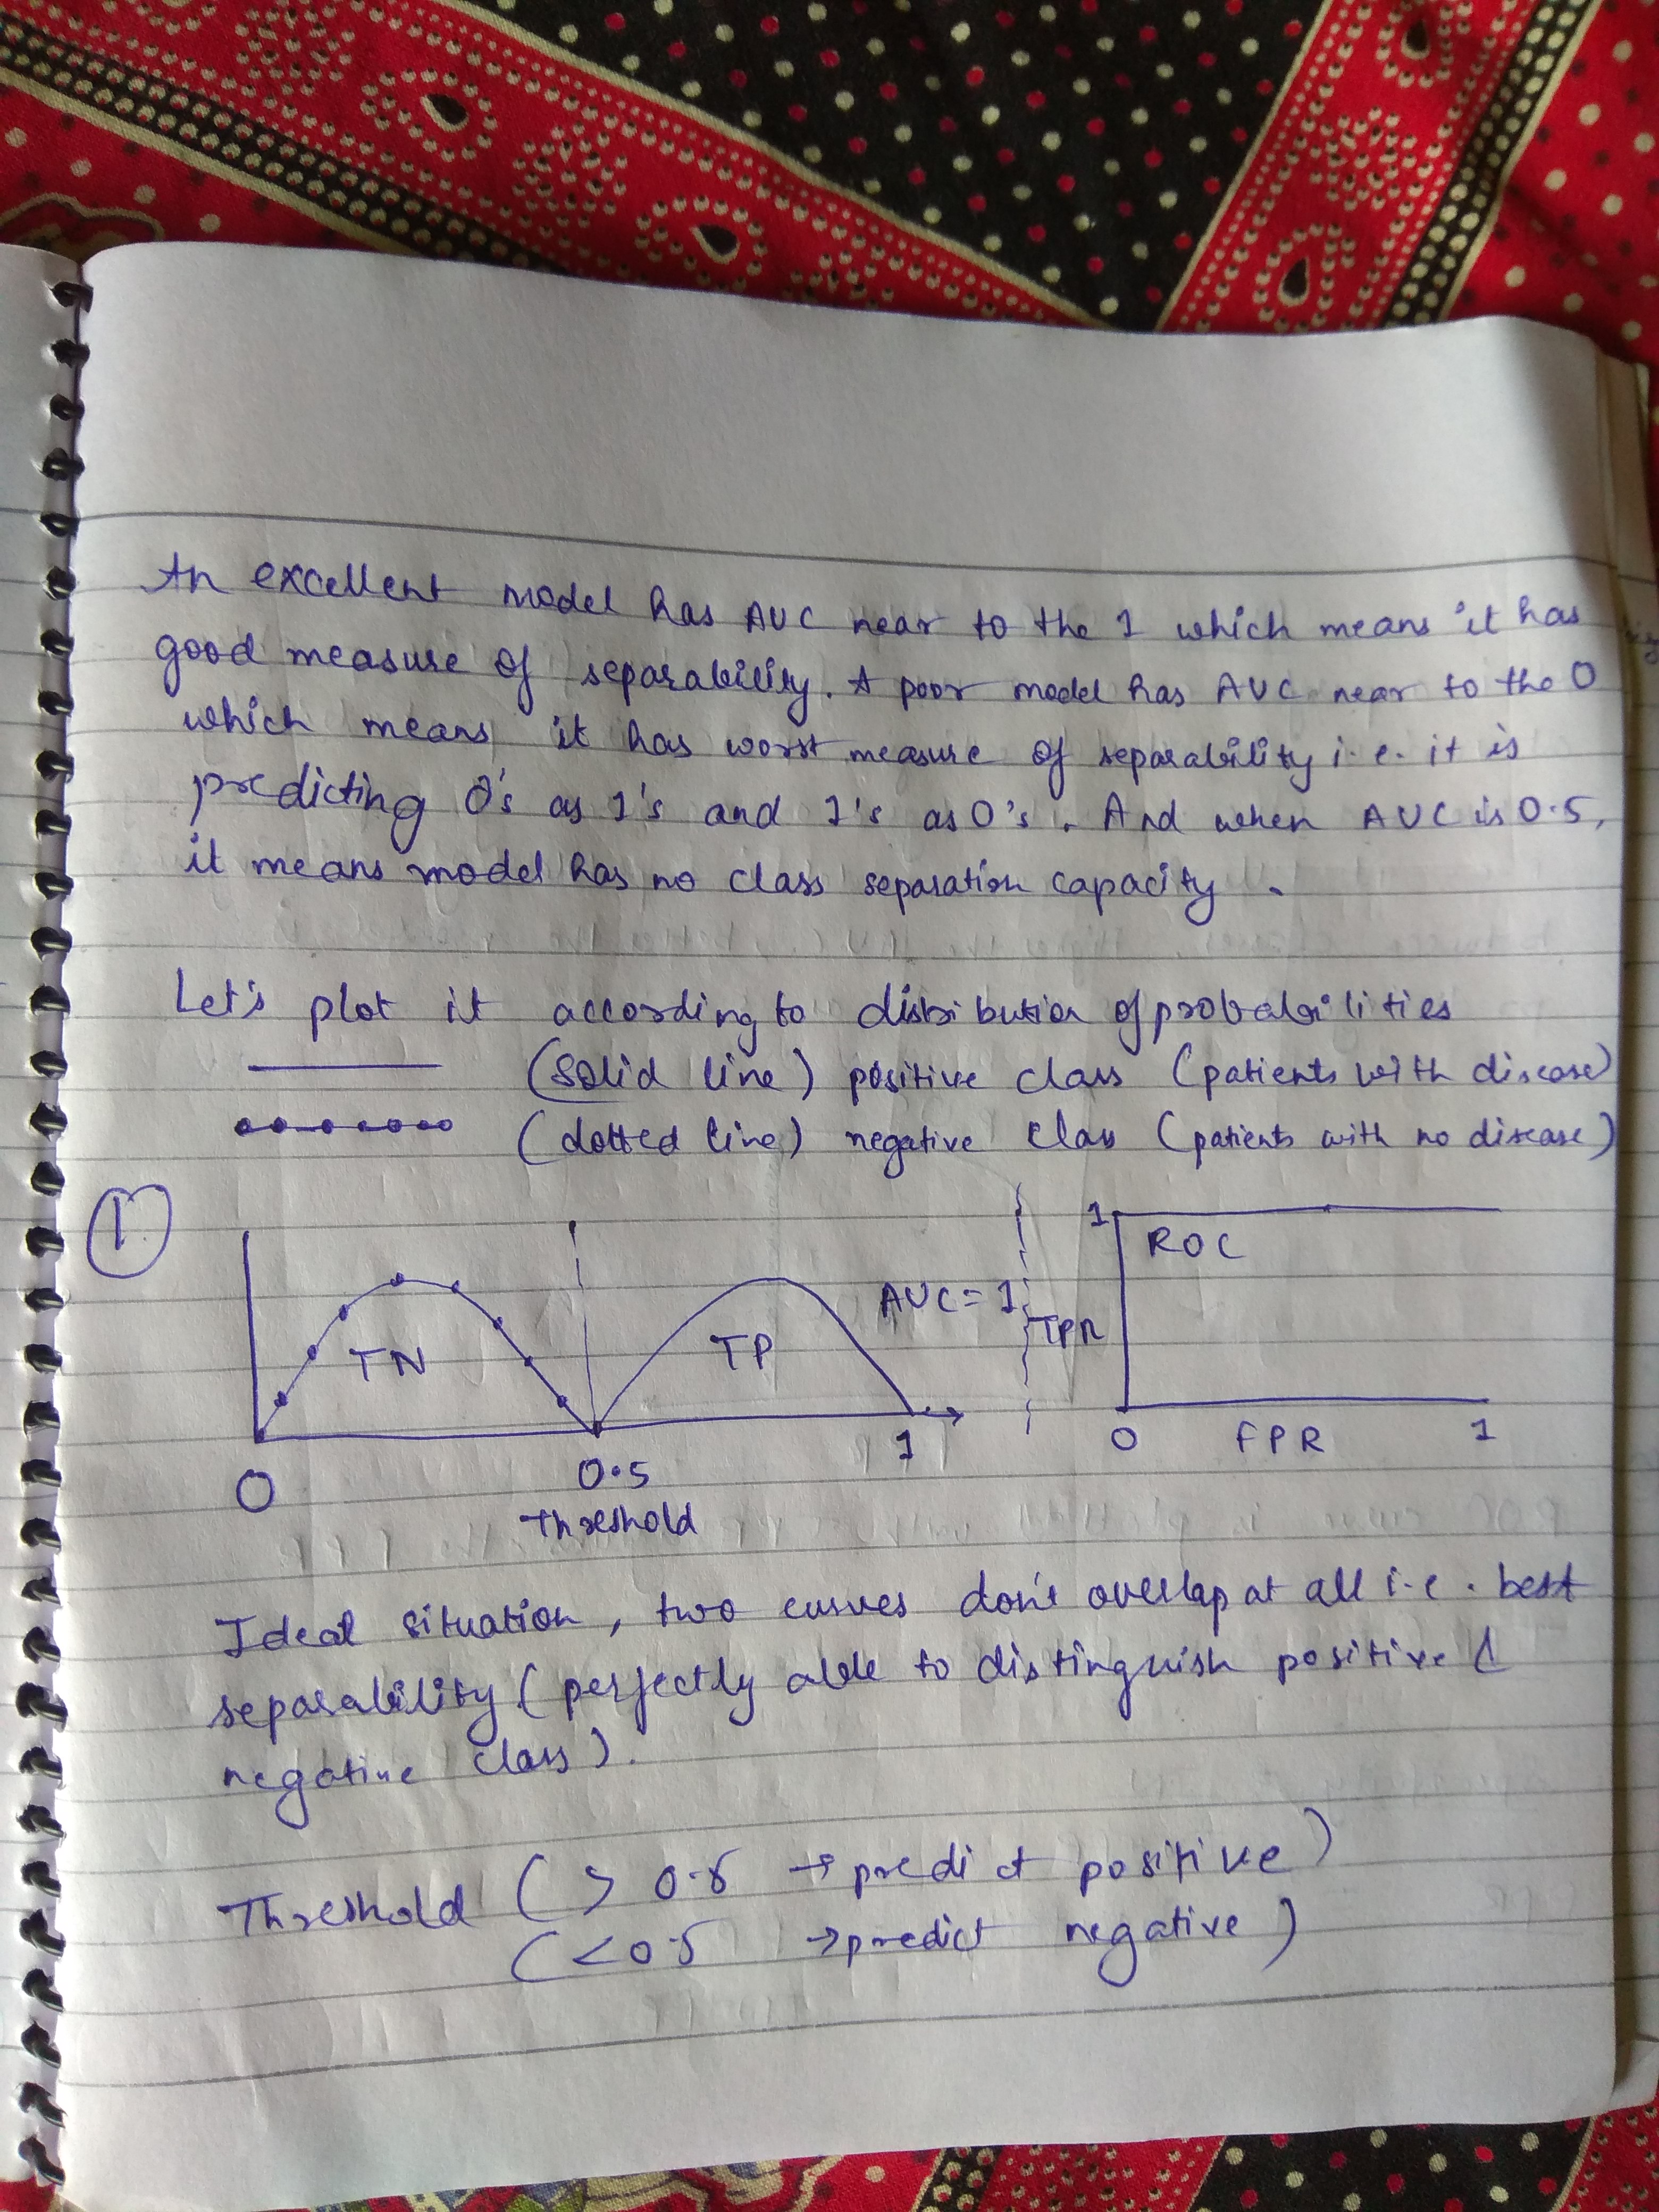 An excellent model has AUC near to the 1 which means it has
good measure of separability. A poor model has AUC near to the 0
which means it has worst measure of separability i.e. it is
predicting 0's as 1's and 1's as 0's. And when AUC is 0.5,
it means model has no class separation capacity.
Let's plot it according to distribution of probabilities
(solid line) positive class (patients with disease)
(dotted line) negative class (patients with no disease)
1
TN
TP
AUC = 1
0
0.5
1
Threshold
1
ROC
TPR
0
FPR
1
Ideal situation, two curves don't overlap at all i.e. best
separability (perfectly able to distinguish positive &
negative class).
Threshold ( > 0.5 → predict positive )
( < 0.5 → predict negative )